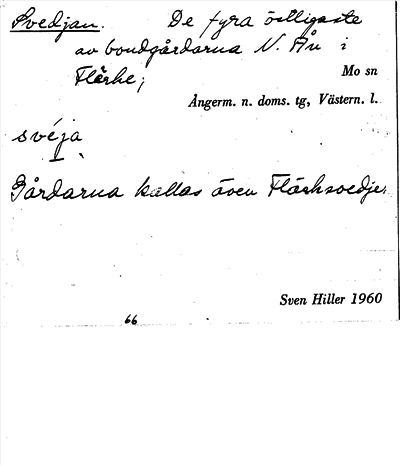 Svedjan. De fyra östligaste
av bondgårdarna N. Ån i
Flärke;
Mo sn
Ångerm. n. doms. tg, Västern. l.
svéja
Gårdarna kallas även Flärksvedje.
Sven Hiller 1960
66